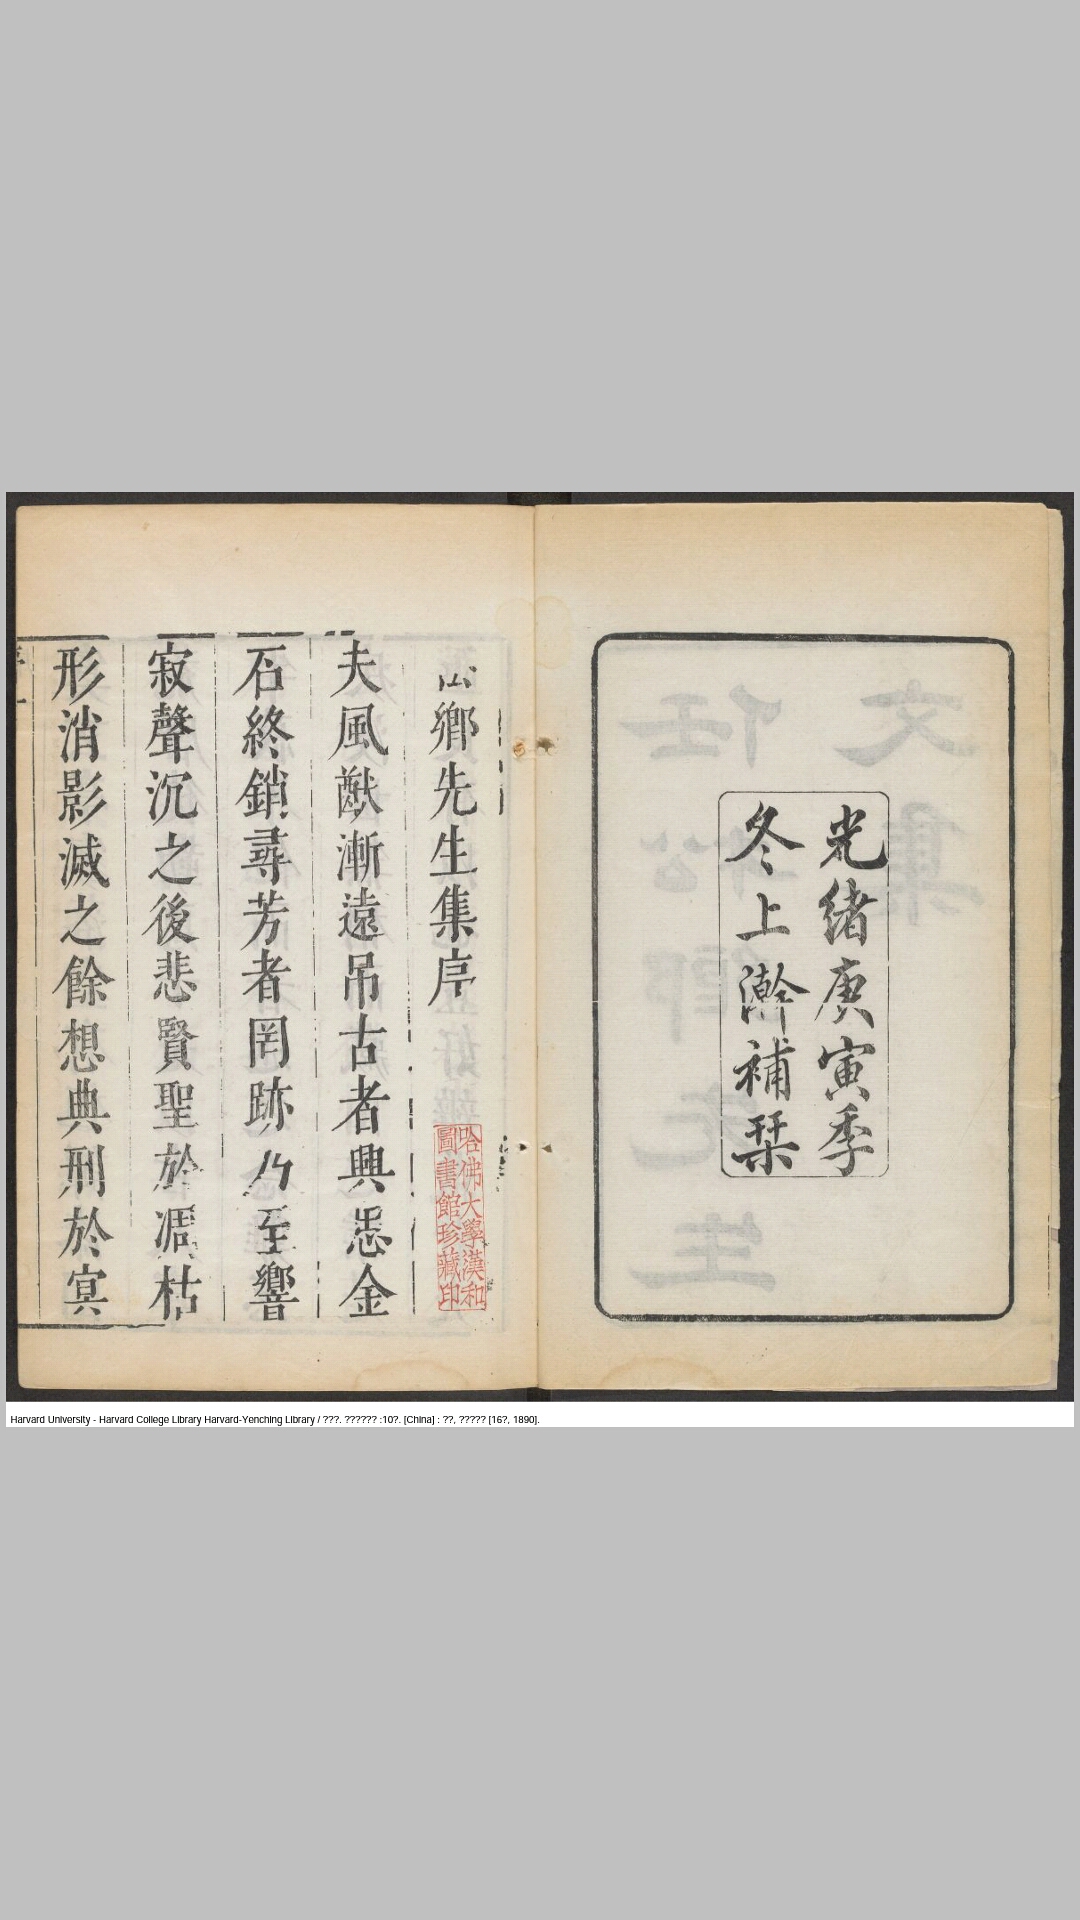 光緒庚寅季
冬上澣補栞
鄉先生集序
哈佛大學漢和
圖書館珍藏印
夫風猷漸遠吊古者興悲金
石終銷尋芳者罔跡乃至響
寂聲沉之後悲賢聖於凋枯
形消影滅之餘想典刑於冥
Harvard University - Harvard College Library Harvard-Yenching Library / ???. ?????? :10?. [China] : ??, ????? [16?, 1890].